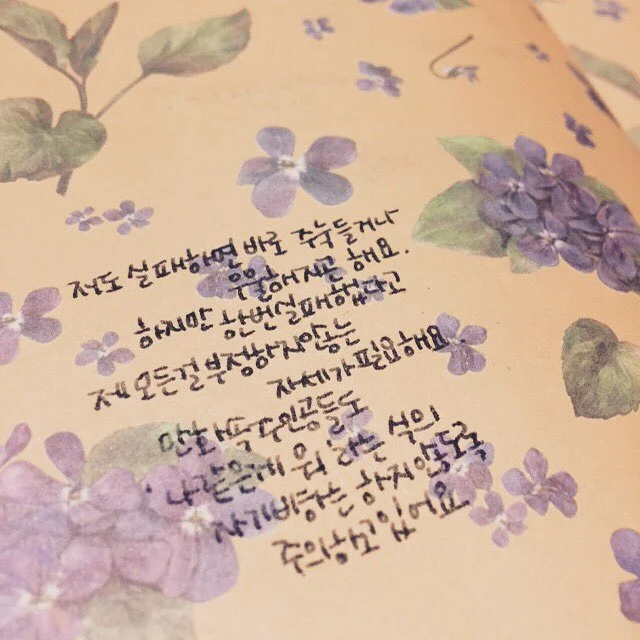 저도 실패하면 바로 주눅들거나
우울해지곤 해요.
하지만 한번 실패했다고
제 모든걸 부정하지않는
자세가 필요해요
만화 속 주인공들도
'나 같은게 뭐' 같은 식의
자기비하는 하지않도록
주의하고 있어요